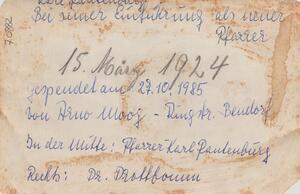 Karl Rautenburg
Bei seiner Einführung als neuer
Pfarrer
15. März 1924
gespendet am 27.10.1985
von Arno Moog - Ringstr. Bendorf
In der Mitte: Pfarrer Karl Rautenburg
Rechts: Dr. Trottbaum